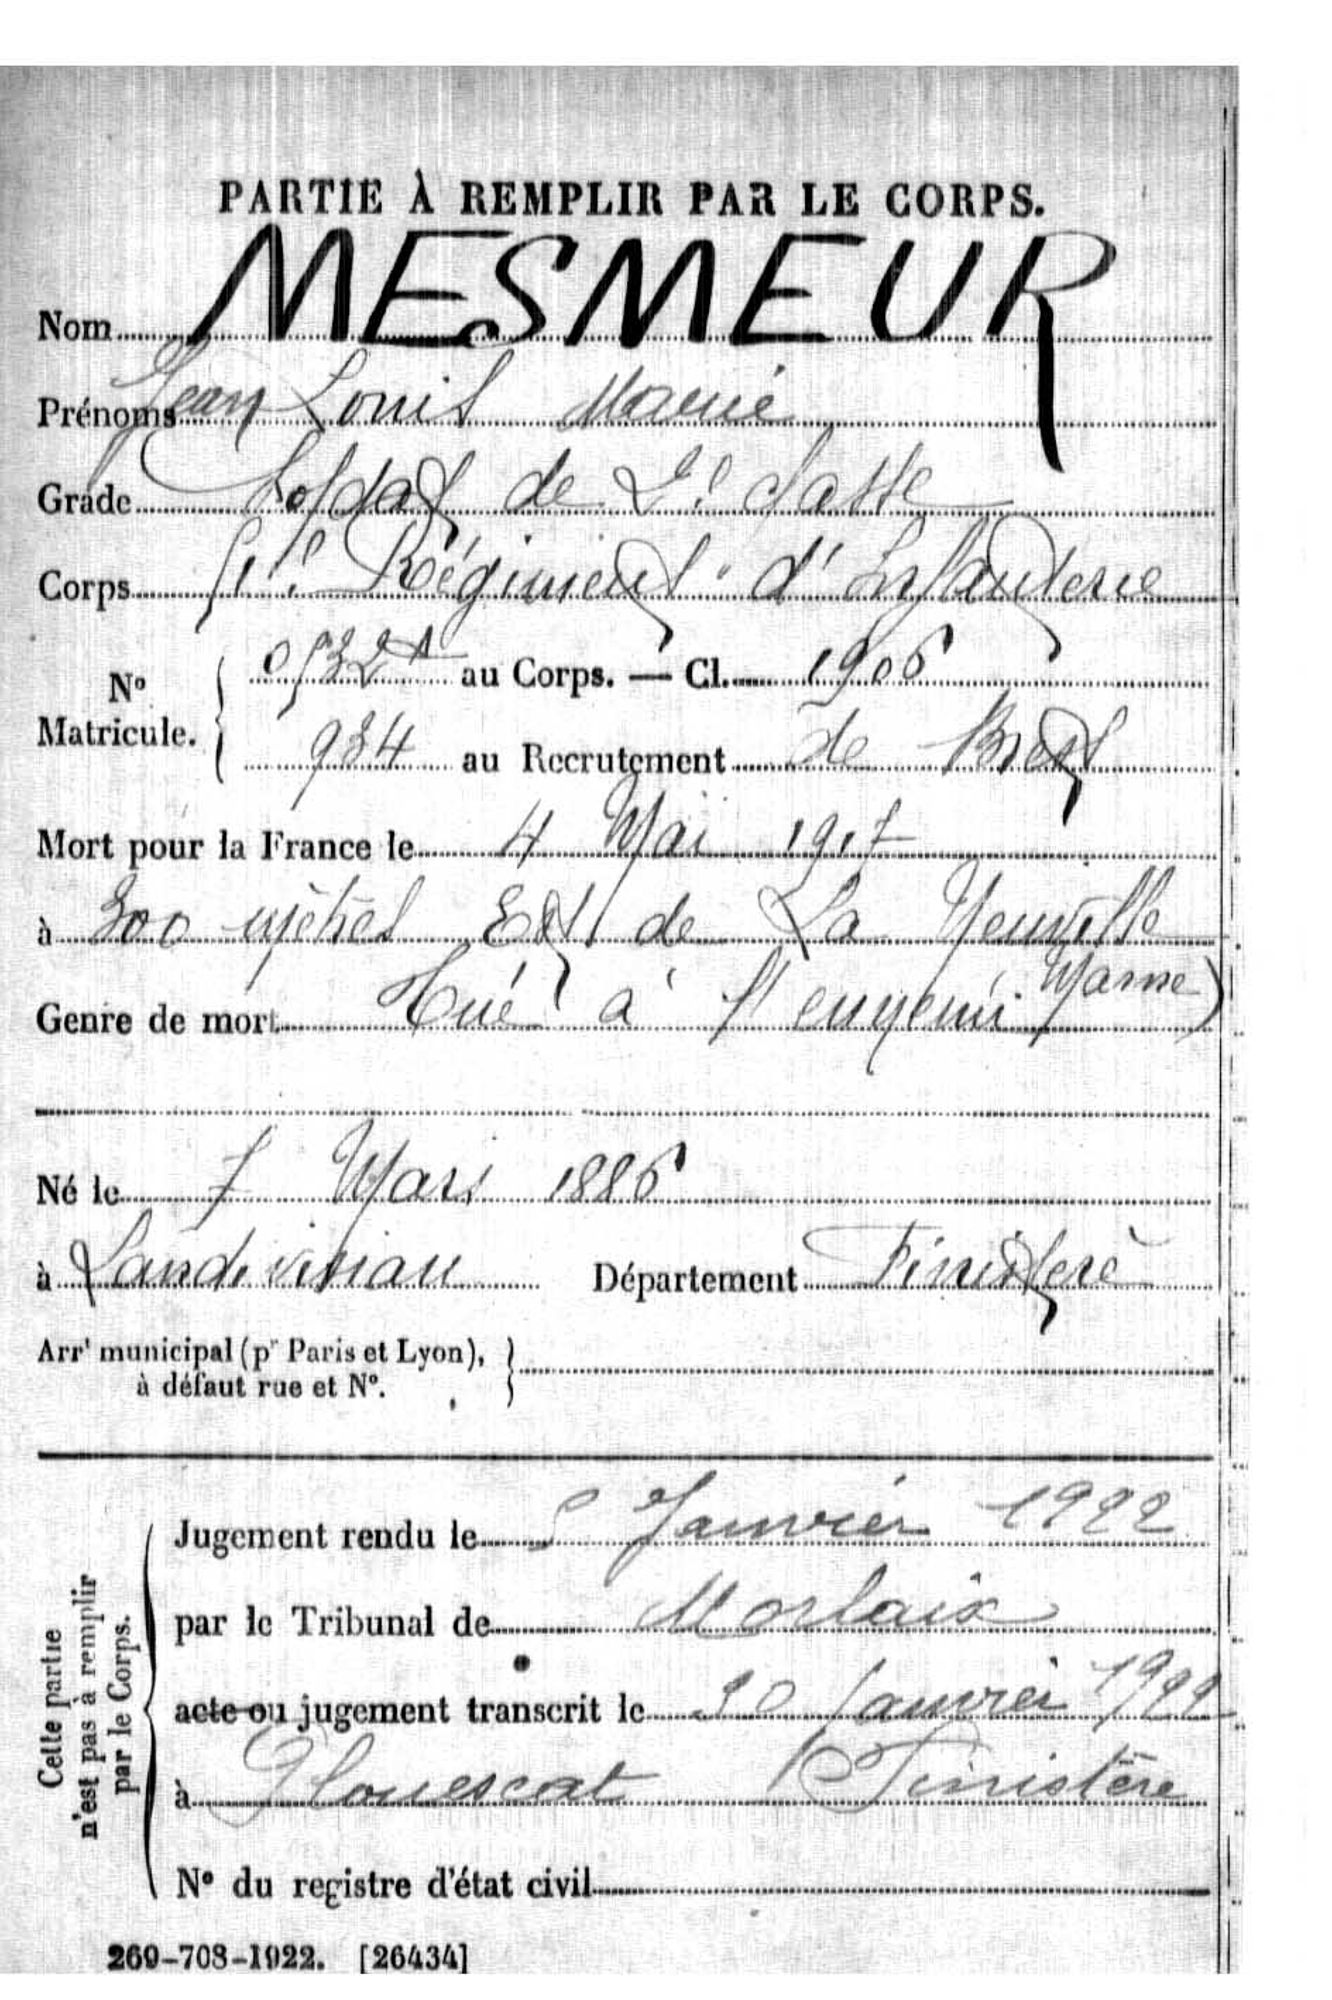 PARTIE À REMPLIR PAR LE CORPS.
Nom MESMEUR
Prénoms Jean Louis Marie
Grade Soldat de 2e classe
Corps Régiment d'Infanterie
No Matricule. au Corps. — Cl. 1906
934 au Recrutement de Brest
Mort pour la France le 4 Mai 1917
à 300 mètres Est de La Neuville
Marne)
Genre de mort Tué à l'ennemi
Né le 7 Mars 1886
à Landivisiau Département Finistère
Arrt municipal (pr Paris et Lyon),
à défaut rue et N°.
Cette partie
n'est pas à remplir
par le Corps.
Jugement rendu le 5 Janvier 1922
par le Tribunal de Morlaix
acte ou jugement transcrit le Janvier 1922
à Plouescat (Finistère
N° du registre d'état civil
269-708-1922. [26434]